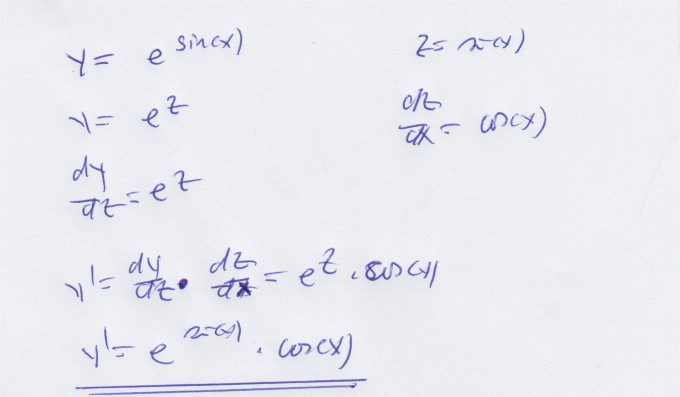 y = e^sin(x)   z = sin(x)
y = e^z   dz/dx = cos(x)
dy/dz = e^z
y' = dy/dz · dz/dx = e^z · cos(x)
y' = e^sin(x) · cos(x)